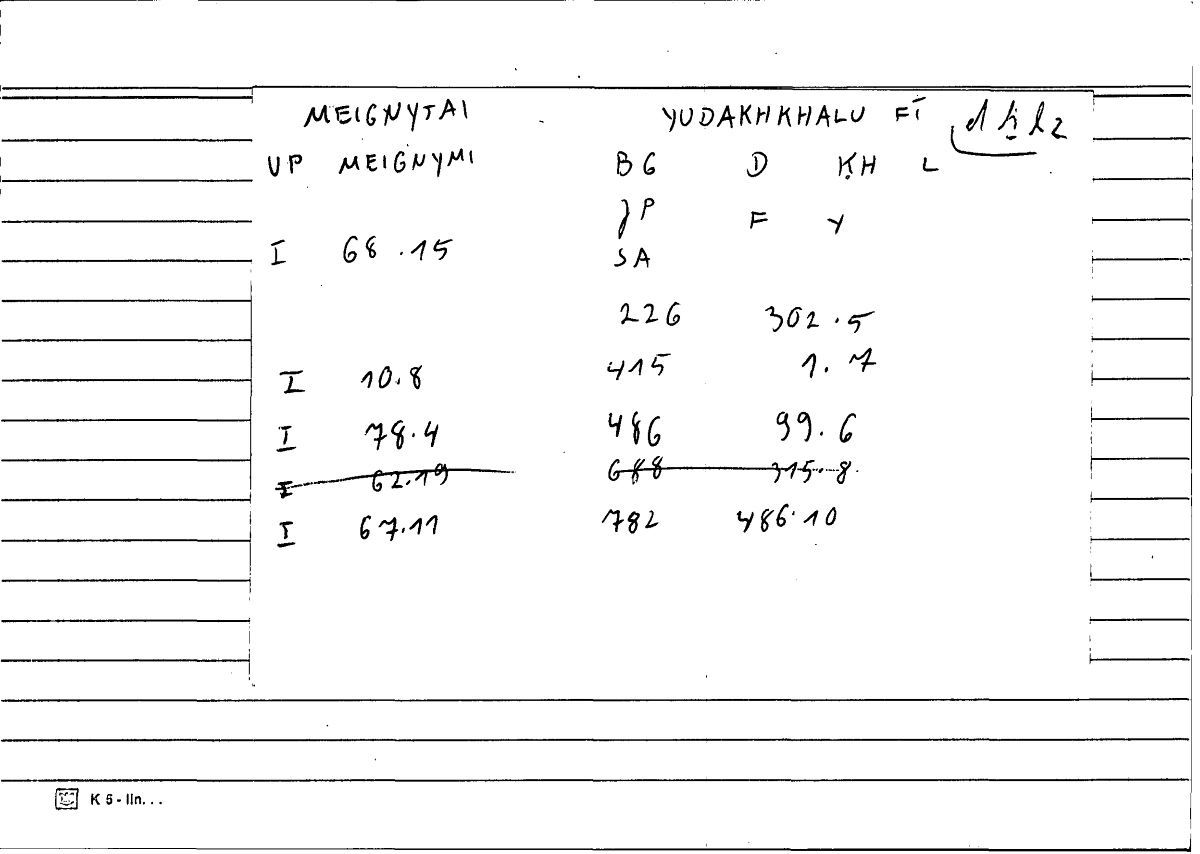 MEIGNYTAI YUDAKHKHALU FĪ dḵl2
UP MEIGNYMI BG D ḲH L
JP F Y
I 68.15 SA
226 302.5
I 10.8 415 1.7
I 78.4 486 99.6
I 62.19 688 315.8
I 67.11 782 486.10
K 5 - lin...